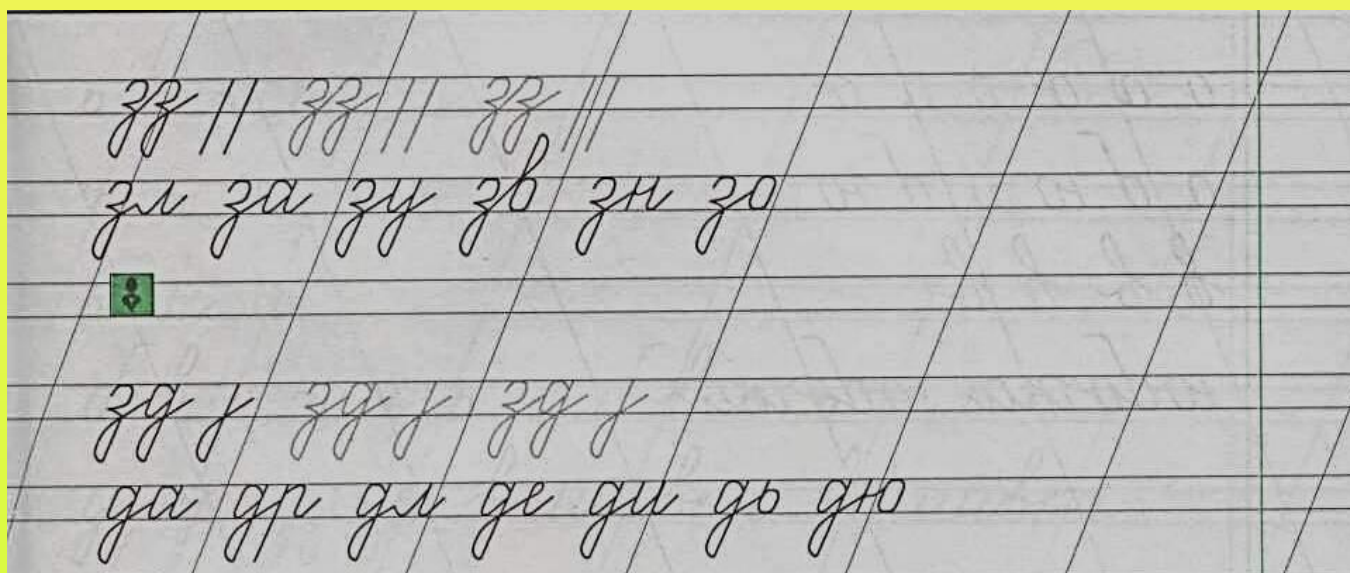 зз зз зз
зл за зу зв зн зо
зд зд зд
да др дл де ди дь дю